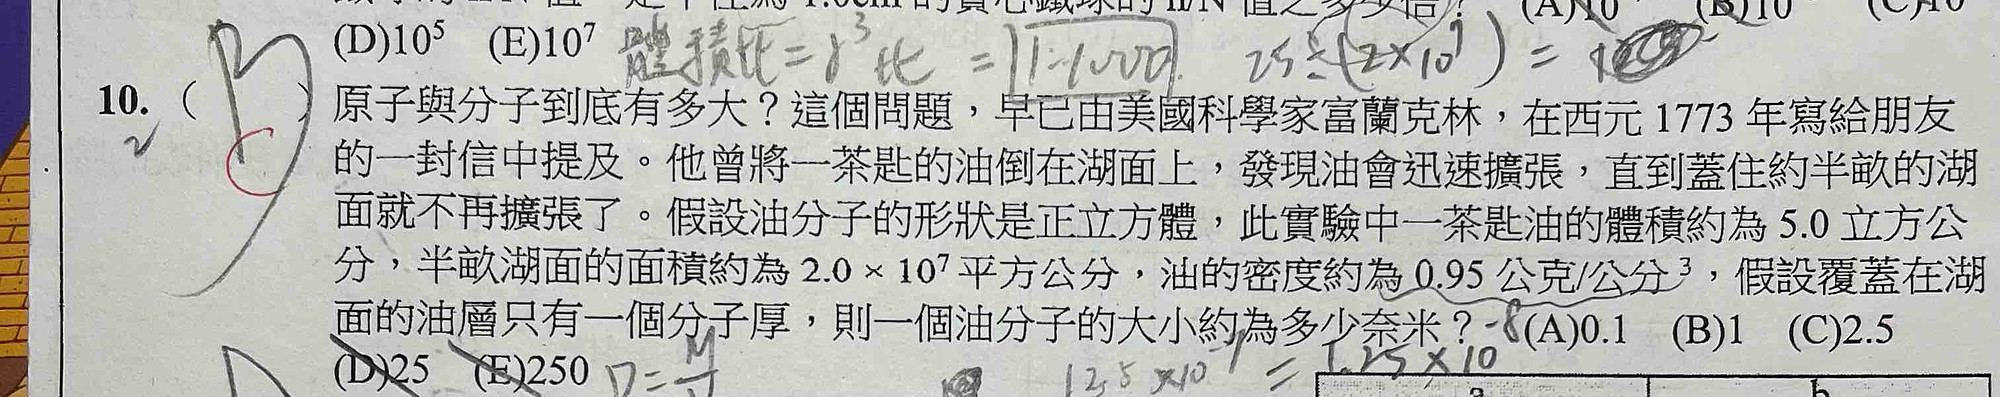 (D)10⁵ (E)10⁷ 體積比=r³比=1:1000 25÷(2×10⁹)=
10.( B )原子與分子到底有多大？這個問題，早已由美國科學家富蘭克林，在西元 1773 年寫給朋友
的一封信中提及。他曾將一茶匙的油倒在湖面上，發現油會迅速擴張，直到蓋住約半畝的湖
面就不再擴張了。假設油分子的形狀是正立方體，此實驗中一茶匙油的體積約為 5.0 立方公
分，半畝湖面的面積約為 2.0 × 10⁷ 平方公分，油的密度約為 0.95 公克/公分³，假設覆蓋在湖
面的油層只有一個分子厚，則一個油分子的大小約為多少奈米？(A)0.1 (B)1 (C)2.5
(D)25 (E)250 D=M/V = 1.25×10⁻⁸
a b